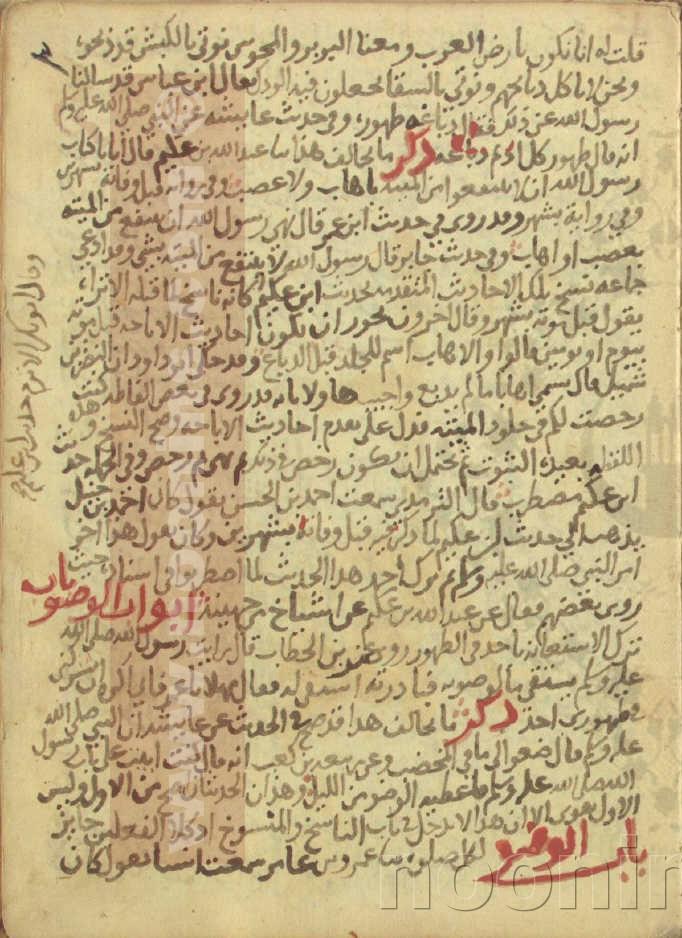 قلت له انا نكون بارض العرب ومعنا البربر والمجوس نوتى بالكبش قد ذبحوه
ونحن لا ناكل ذبائحهم ونوتى بالسقا يجعلون فيه الودك فقال ابن عباس قد سالنا
رسول الله عن ذلك فقال دباغه طهوره وفى حديث عايشه عن النبى صلى الله عليه وسلم
انه قال طهور كل اديم دباغه ذكر ما يخالف هذا بنا عبد الله بن عكيم قال اتانا كتاب
رسول الله ان لا تنتفعوا من الميته باهاب ولا عصب وفى روايه قبل وفاته بشهرين
وفى رواية بشهر وقد روى فى حديث ابن عمر قال نهى رسول الله ان ينتفع من الميته
بعصب او اهاب وفى حديث جابر قال رسول الله لا ينتفع من الميته بشى وقد ادعى
جماعه نسخ تلك الاحاديث المتقدمه بحديث ابن عكيم كانه ناسخ لما قبله الا تراه
يقول قبل موته بشهر وقال اخرون يجوز ان تكون احاديث الاباحه قبل موته
بيوم او يومين قالوا والاهاب اسم للجلد قبل الدباغ وقد حكى ابو داود ان النضر بن
شميل قال يسمى اهابا ما لم يدبغ واجيب هاولا بانه قد روى فى بعض الفاظه كنت
رخصت لكم فى جلود الميته فدل على تقدم احاديث الاباحه وصح النسخ وهذه
اللفظه بعيده الثبوت ثم يحتمل ان يكون رخص فى ذلك ثم نهى ثم رخص وفى الجمله حديث
ابن عكيم مضطرب قال الترمدى سمعت احمد بن الحسن يقول كان احمد بن حنبل
يذهب الى حديث ابن عكيم لما ذكر فيه قبل وفاته بشهرين وكان يقول هذا اخر
امر النبى صلى الله عليه وسلم ثم ترك احمد هذا الحديث لما اضطربوا فى اسناده حيث
روى بعضهم فقال عن عبد الله بن عكيم عن اشياخ من جهينه ابواب الوضو باب
ترك الاستعانه باحد فى الطهور روى عمر بن الخطاب قال رايت رسول الله صلى الله
عليه وسلم يستقى ما لوضويه فبادرته استقى له فقال مهلا يا عمر فانى اكره ان يشركنى
فى طهورى احد ذكر ما يخالف هذا قد صح فى الحديث عن عايشه ان النبى صلى الله
عليه وسلم قال ضعوا لى ما فى المخضب وعن ربيعه بن كعب انه قال كنت ابيت على باب رسول
الله صلى الله عليه وسلم فاعطيه الوضو من الليل وهذان الحديثان اصح من الاول وليس
الاول بقوى الا ان هذا لا يدخل فى باب الناسخ والمنسوخ اذ كلا الفعلين جايز
باب الوضو لكل صلوه بنا عمرو بن عامر سمعت انسا يقول كان